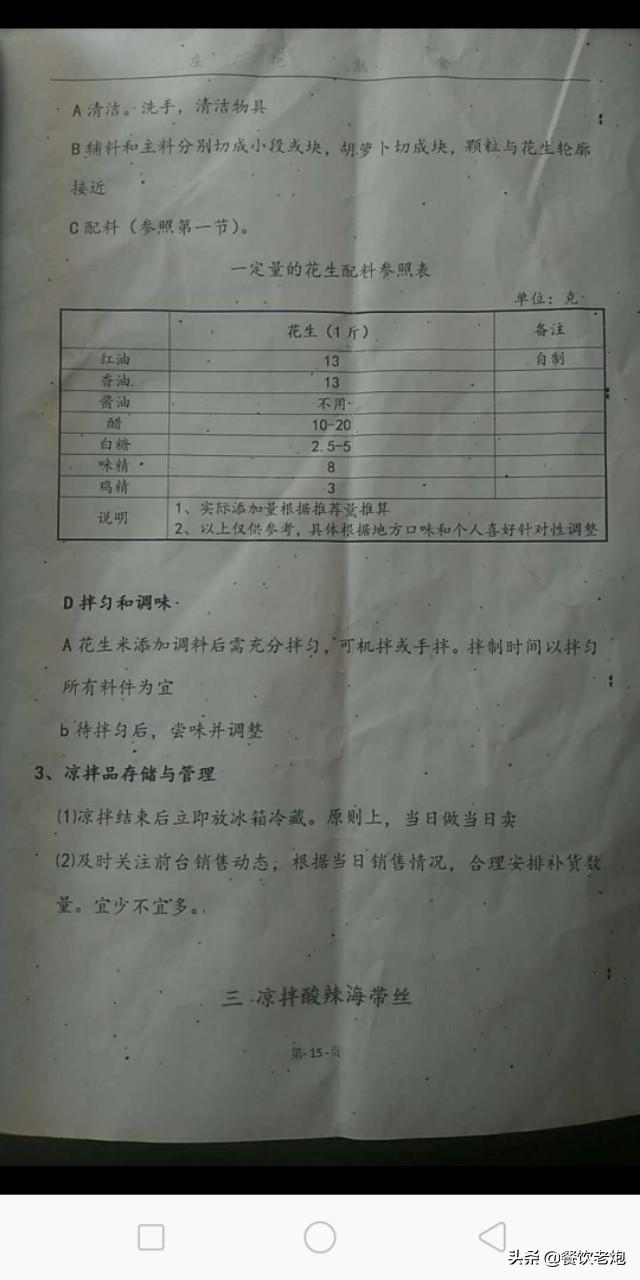 A清洁。洗手，清洁物具
B辅料和主料分别切成小段或块，胡萝卜切成块，颗粒与花生轮廓
接近
C配料（参照第一节）。
一定量的花生配料参照表
单位：克
花生（1斤） 备注
红油 13 自制
香油 13
酱油 不用
醋 10-20
白糖 2.5-5
味精 8
鸡精 3
说明 1、实际添加量根据推荐量推算
2、以上仅供参考，具体根据地方口味和个人喜好针对性调整
D拌匀和调味
A花生米添加调料后需充分拌匀，可机拌或手拌。拌制时间以拌匀
所有料件为宜
b待拌匀后，尝味并调整
3、凉拌品存储与管理
(1)凉拌结束后立即放冰箱冷藏。原则上，当日做当日卖
(2)及时关注前台销售动态，根据当日销售情况，合理安排补货数
量。宜少不宜多。
三 凉拌酸辣海带丝
第-15-页
头条 @餐饮老炮